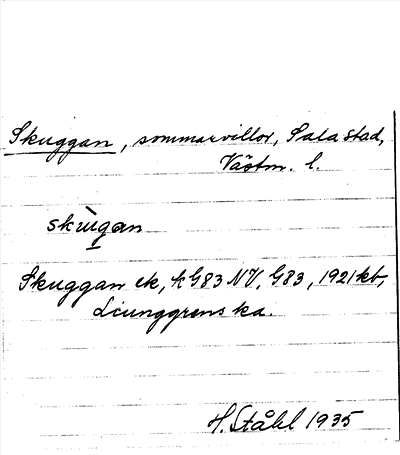 Skuggan, sommarvillor, Sala stad,
Västm. l.
skùgan
Skuggan ek, kG83 NV, G83, 1921 kb,
Liunggrens ka.
H. Ståhl 1935